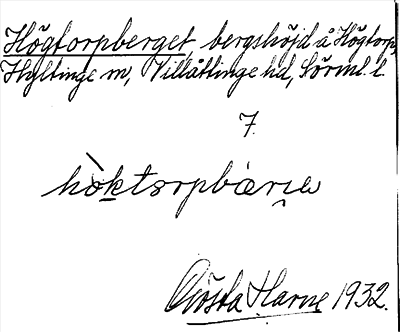 Högtorpberget, bergshöjd å Högtorp,
Hyltinge sn, Villåttinge hd, Sörml. l.
7.
hòktɔrpbærjə
Gösta Harne 1932.